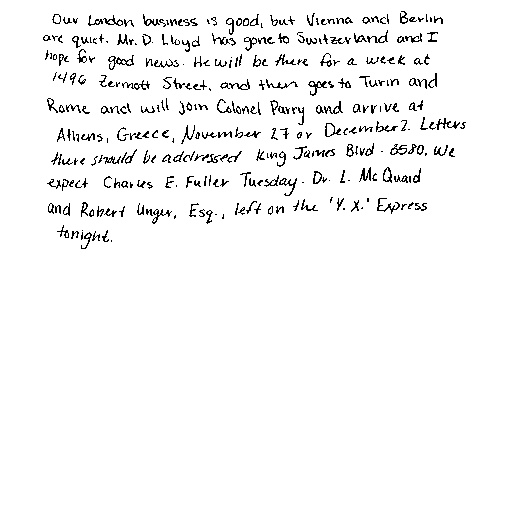 Our London business is good, but Vienna and Berlin
are quiet. Mr. D. Lloyd has gone to Switzerland and I
hope for good news. He will be there for a week at
1496 Zermott Street, and then goes to Turin and
Rome and will join Colonel Parry and arrive at
Athens, Greece, November 27 or December 2. Letters
there should be addressed King James Blvd. 6580. We
expect Charles E. Fuller Tuesday. Dr. L. McQuaid
and Robert Unger, Esq., left on the 'Y.X.' Express
tonight.